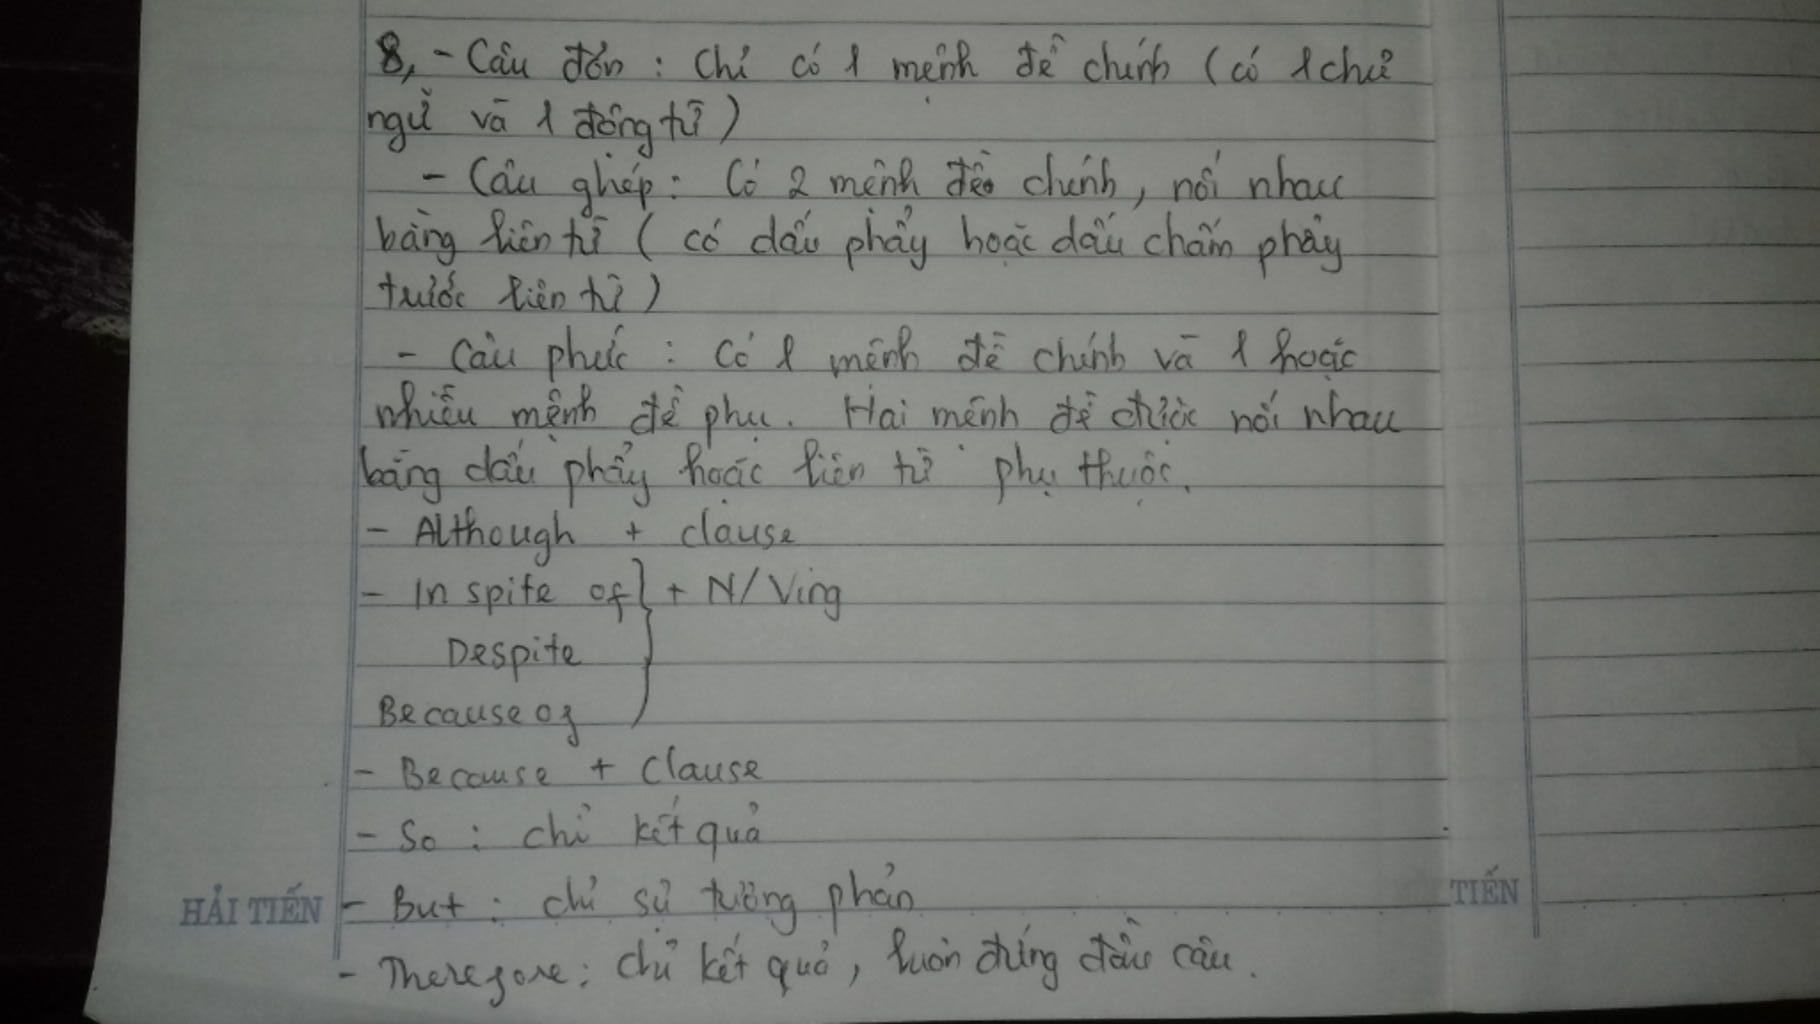 8, - Câu đơn : Chỉ có 1 mệnh đề chính (có 1 chủ
ngữ và 1 động từ)
- Câu ghép : Có 2 mệnh đề chính, nối nhau
bằng liên từ ( có dấu phẩy hoặc dấu chấm phẩy
trước liên từ)
- Câu phức : Có 1 mệnh đề chính và 1 hoặc
nhiều mệnh đề phụ. Hai mệnh đề được nối nhau
bằng dấu phẩy hoặc liên từ phụ thuộc.
- Although + clause
- In spite of } + N/Ving
Despite
Because of
- Because + Clause
- So : chỉ kết quả
- But : chỉ sự tương phản
HẢI TIẾN
TIẾN
- Therefore : chỉ kết quả, luôn đứng đầu câu.